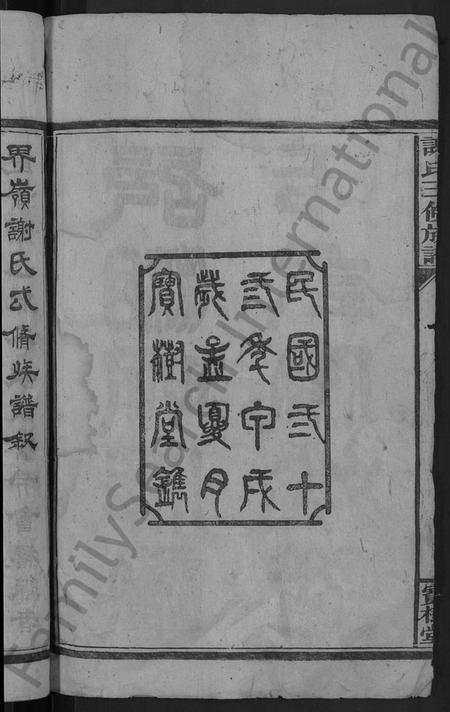 謝氏三修族譜
寶樹堂
民國弍十
弎年甲戌
歲孟夏月
寶樹堂鐫
界嶺謝氏弎脩族譜叙
FamilySearch International